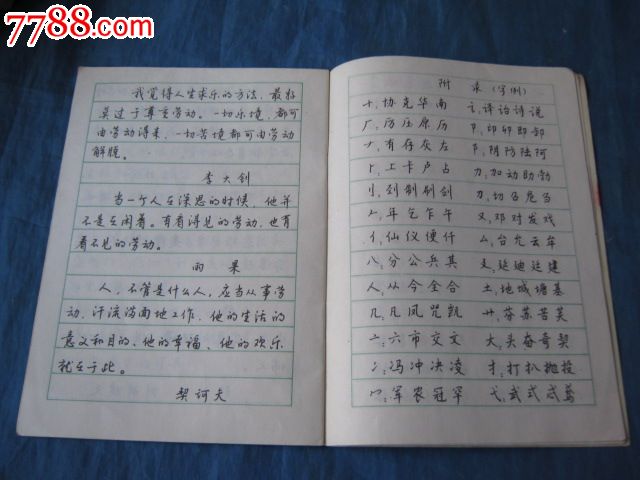 7788.com
我觉得人生求乐的方法，最好
莫过于尊重劳动。一切乐境，都可
由劳动得来，一切苦境都可由劳动
解脱。
李大钊
当一个人在深思的时候，他并
不是在闲着。有看得见的劳动，也有
看不见的劳动。
雨果
人，不管是什么人，应当从事劳
动，汗流满面地工作，他的生活的
意义和目的、他的幸福、他的欢乐
就在于此。
契诃夫
附录（字例）
十：协克华南
厂：厉压原历
𠂇：有存灰左
卜：上卡卢占
刂：到制刷刻
𠂉：年乞乍午
亻：仙仪便仟
八：分公兵其
人：从今全合
几：凡凤咒凯
亠：六市交文
冫：冯冲决凌
冖：军农冠罕
讠：译诒诗说
卩：印卯即卸
阝：阴防陆阿
力：加动助勃
刀：切召危刍
又：邓对发戏
厶：台允去牟
廴：延迪廷建
土：地城塘基
艹：芬苏苦芙
大：头奋奇契
扌：打扒抛投
弋：武式忒鸢